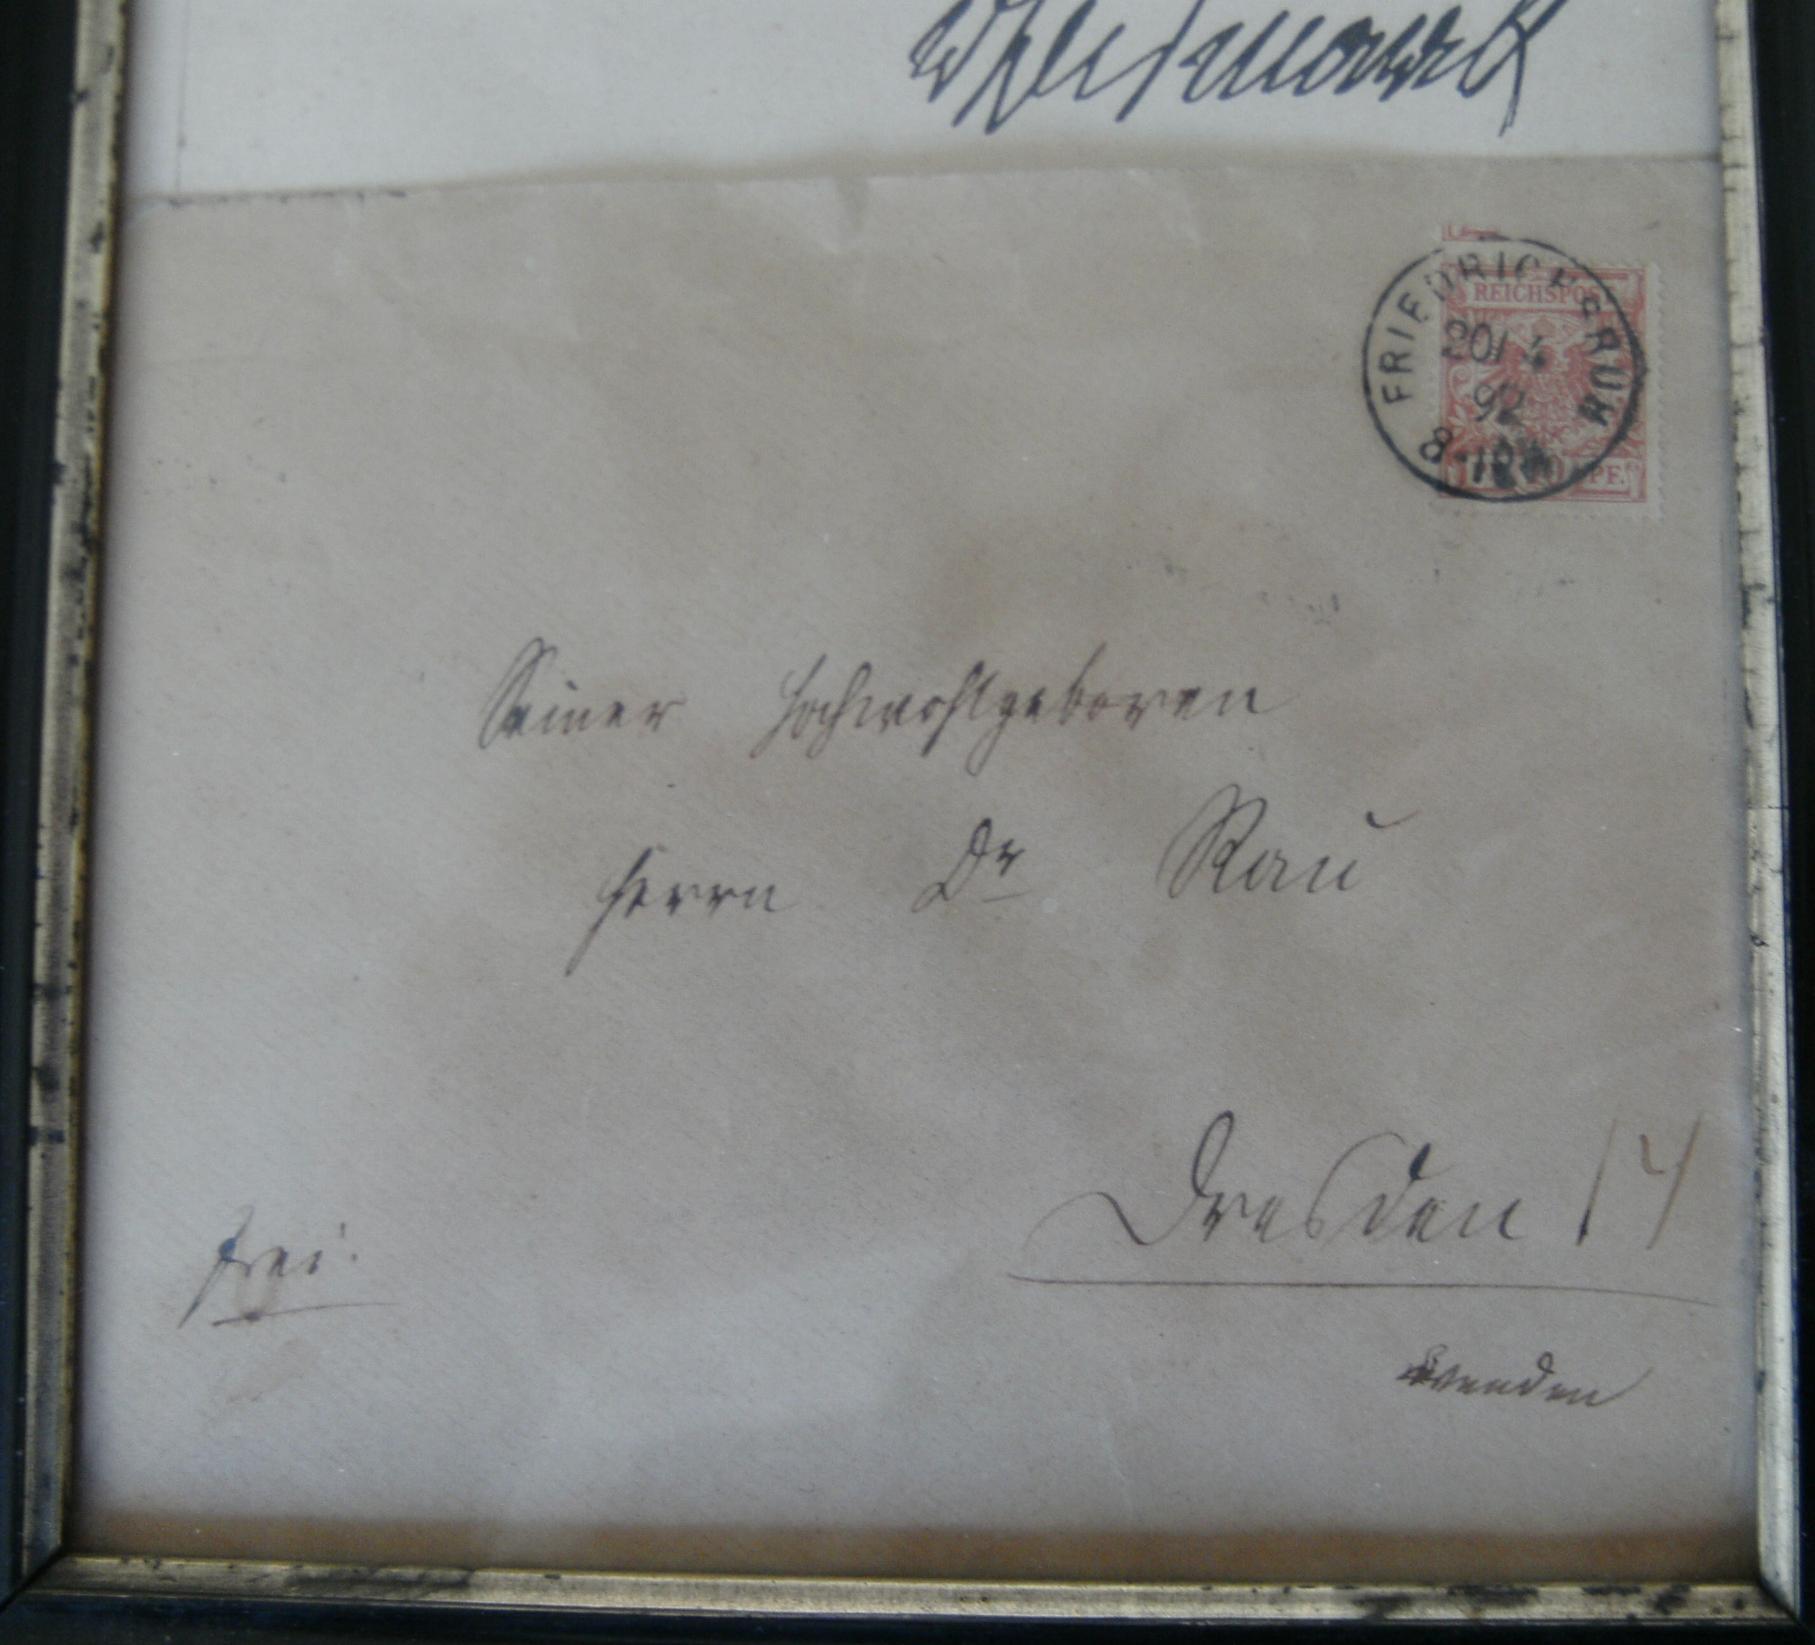 v Bismarck
FRIEDRICHSRUH
REICHSPOST
20/4
92
8-
PF.
Seiner Hochwohlgeboren
Herrn Dr Rau
Dresden 14
frei.
wenden